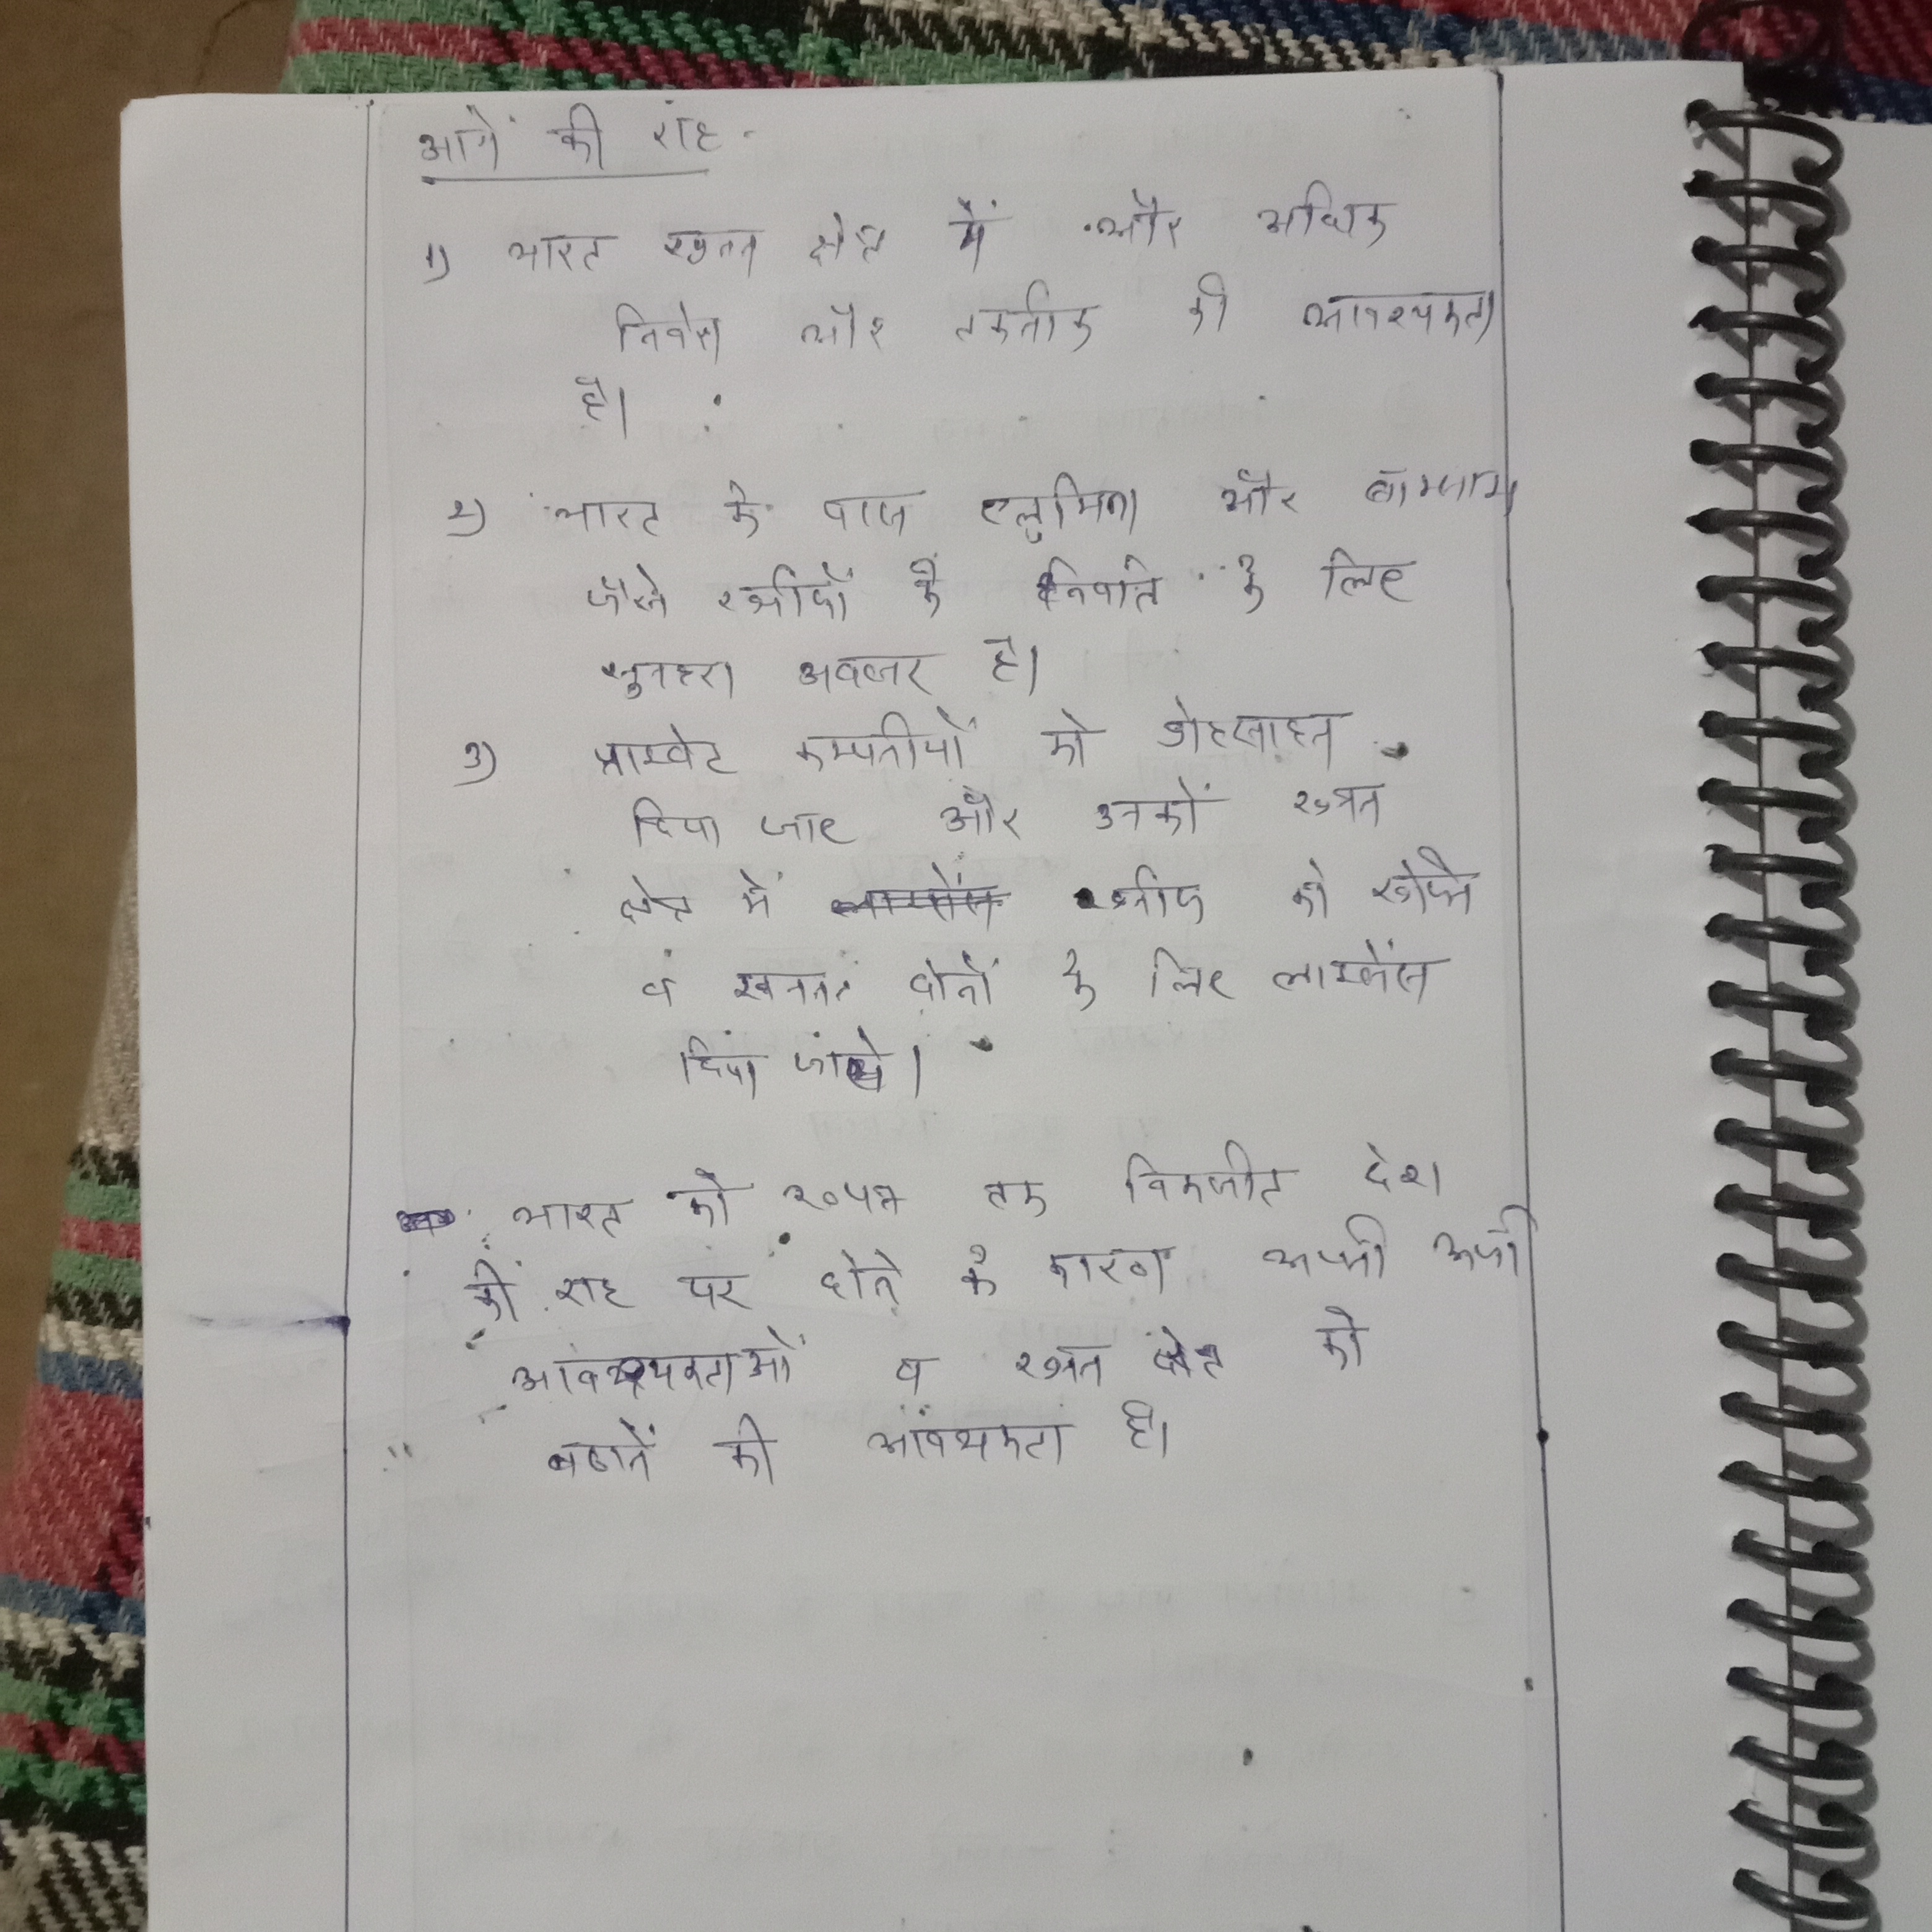 आगें की राह -
1) भारत खनन क्षेत्र में और अधिक
निवेश और तकनीक की आवश्यकता
है।
2) भारत के पास एलुमिना और
जैसे खनीजों के निर्यात के लिए
सुनहरा अवसर है।
3) प्राइवेट कम्पनीयों को प्रोहत्साहन
दिया जाए और उनकों खनन
क्षेत्र में खनीज को खोजने
व खननं दोनों के लिए लाइसेंस
दिया जाये।
भारत को २०४७ तक विकसीत देश
की राह पर होने के कारण अपनी ऊर्जा
आवश्यकताओं व खनन क्षेत्र को
बढानें की आवश्यकता है।